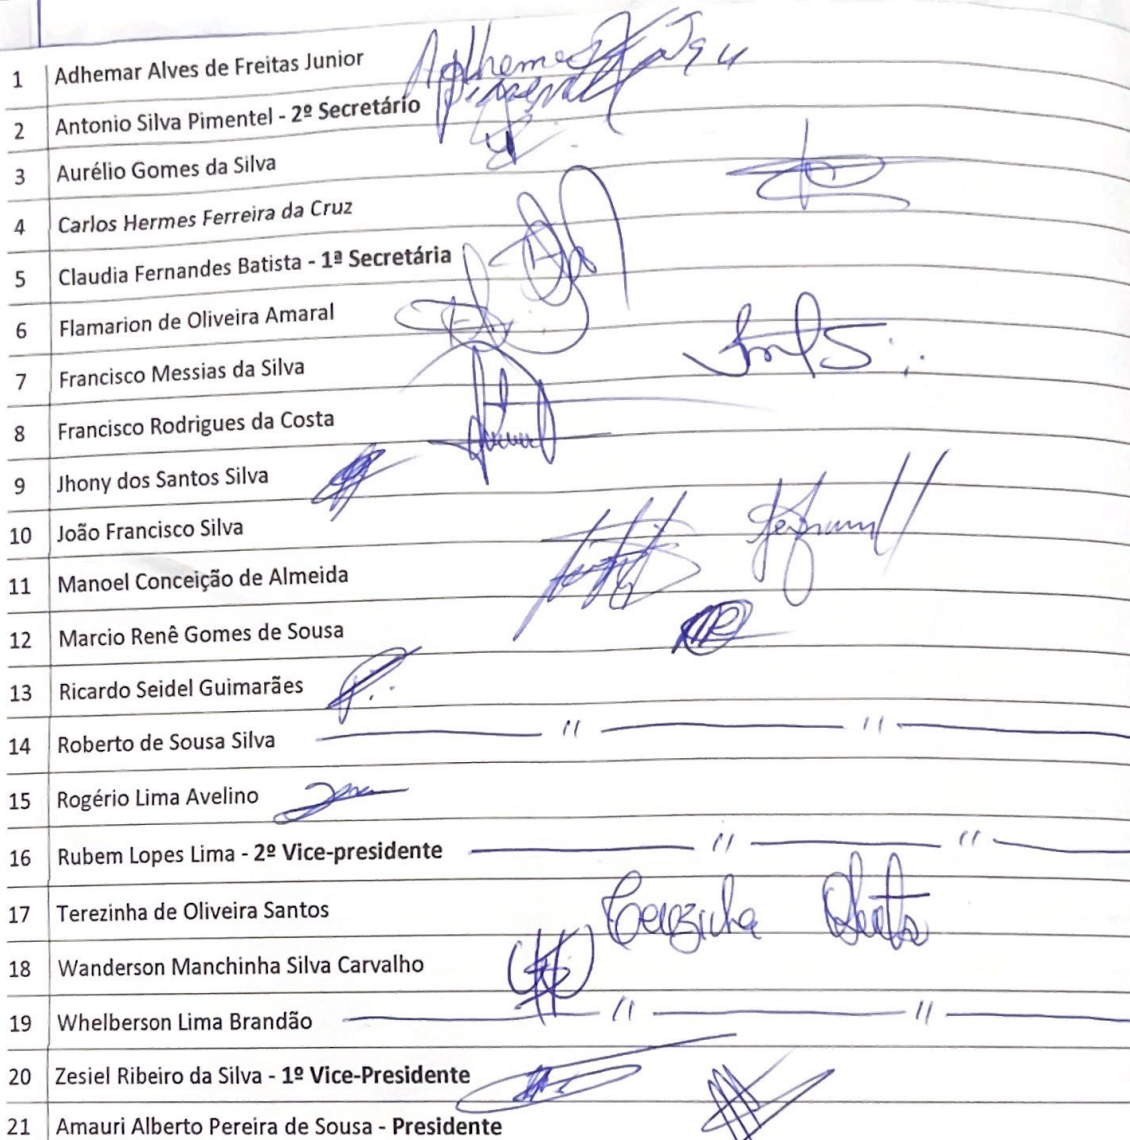 1 Adhemar Alves de Freitas Junior
2 Antonio Silva Pimentel - 2º Secretário
3 Aurélio Gomes da Silva
4 Carlos Hermes Ferreira da Cruz
5 Claudia Fernandes Batista - 1ª Secretária
6 Flamarion de Oliveira Amaral
7 Francisco Messias da Silva
8 Francisco Rodrigues da Costa
9 Jhony dos Santos Silva
10 João Francisco Silva
11 Manoel Conceição de Almeida
12 Marcio Renê Gomes de Sousa
13 Ricardo Seidel Guimarães
14 Roberto de Sousa Silva — // — // —
15 Rogério Lima Avelino
16 Rubem Lopes Lima - 2º Vice-presidente — // — // —
17 Terezinha de Oliveira Santos
18 Wanderson Manchinha Silva Carvalho
19 Whelberson Lima Brandão — // — // —
20 Zesiel Ribeiro da Silva - 1º Vice-Presidente
21 Amauri Alberto Pereira de Sousa - Presidente